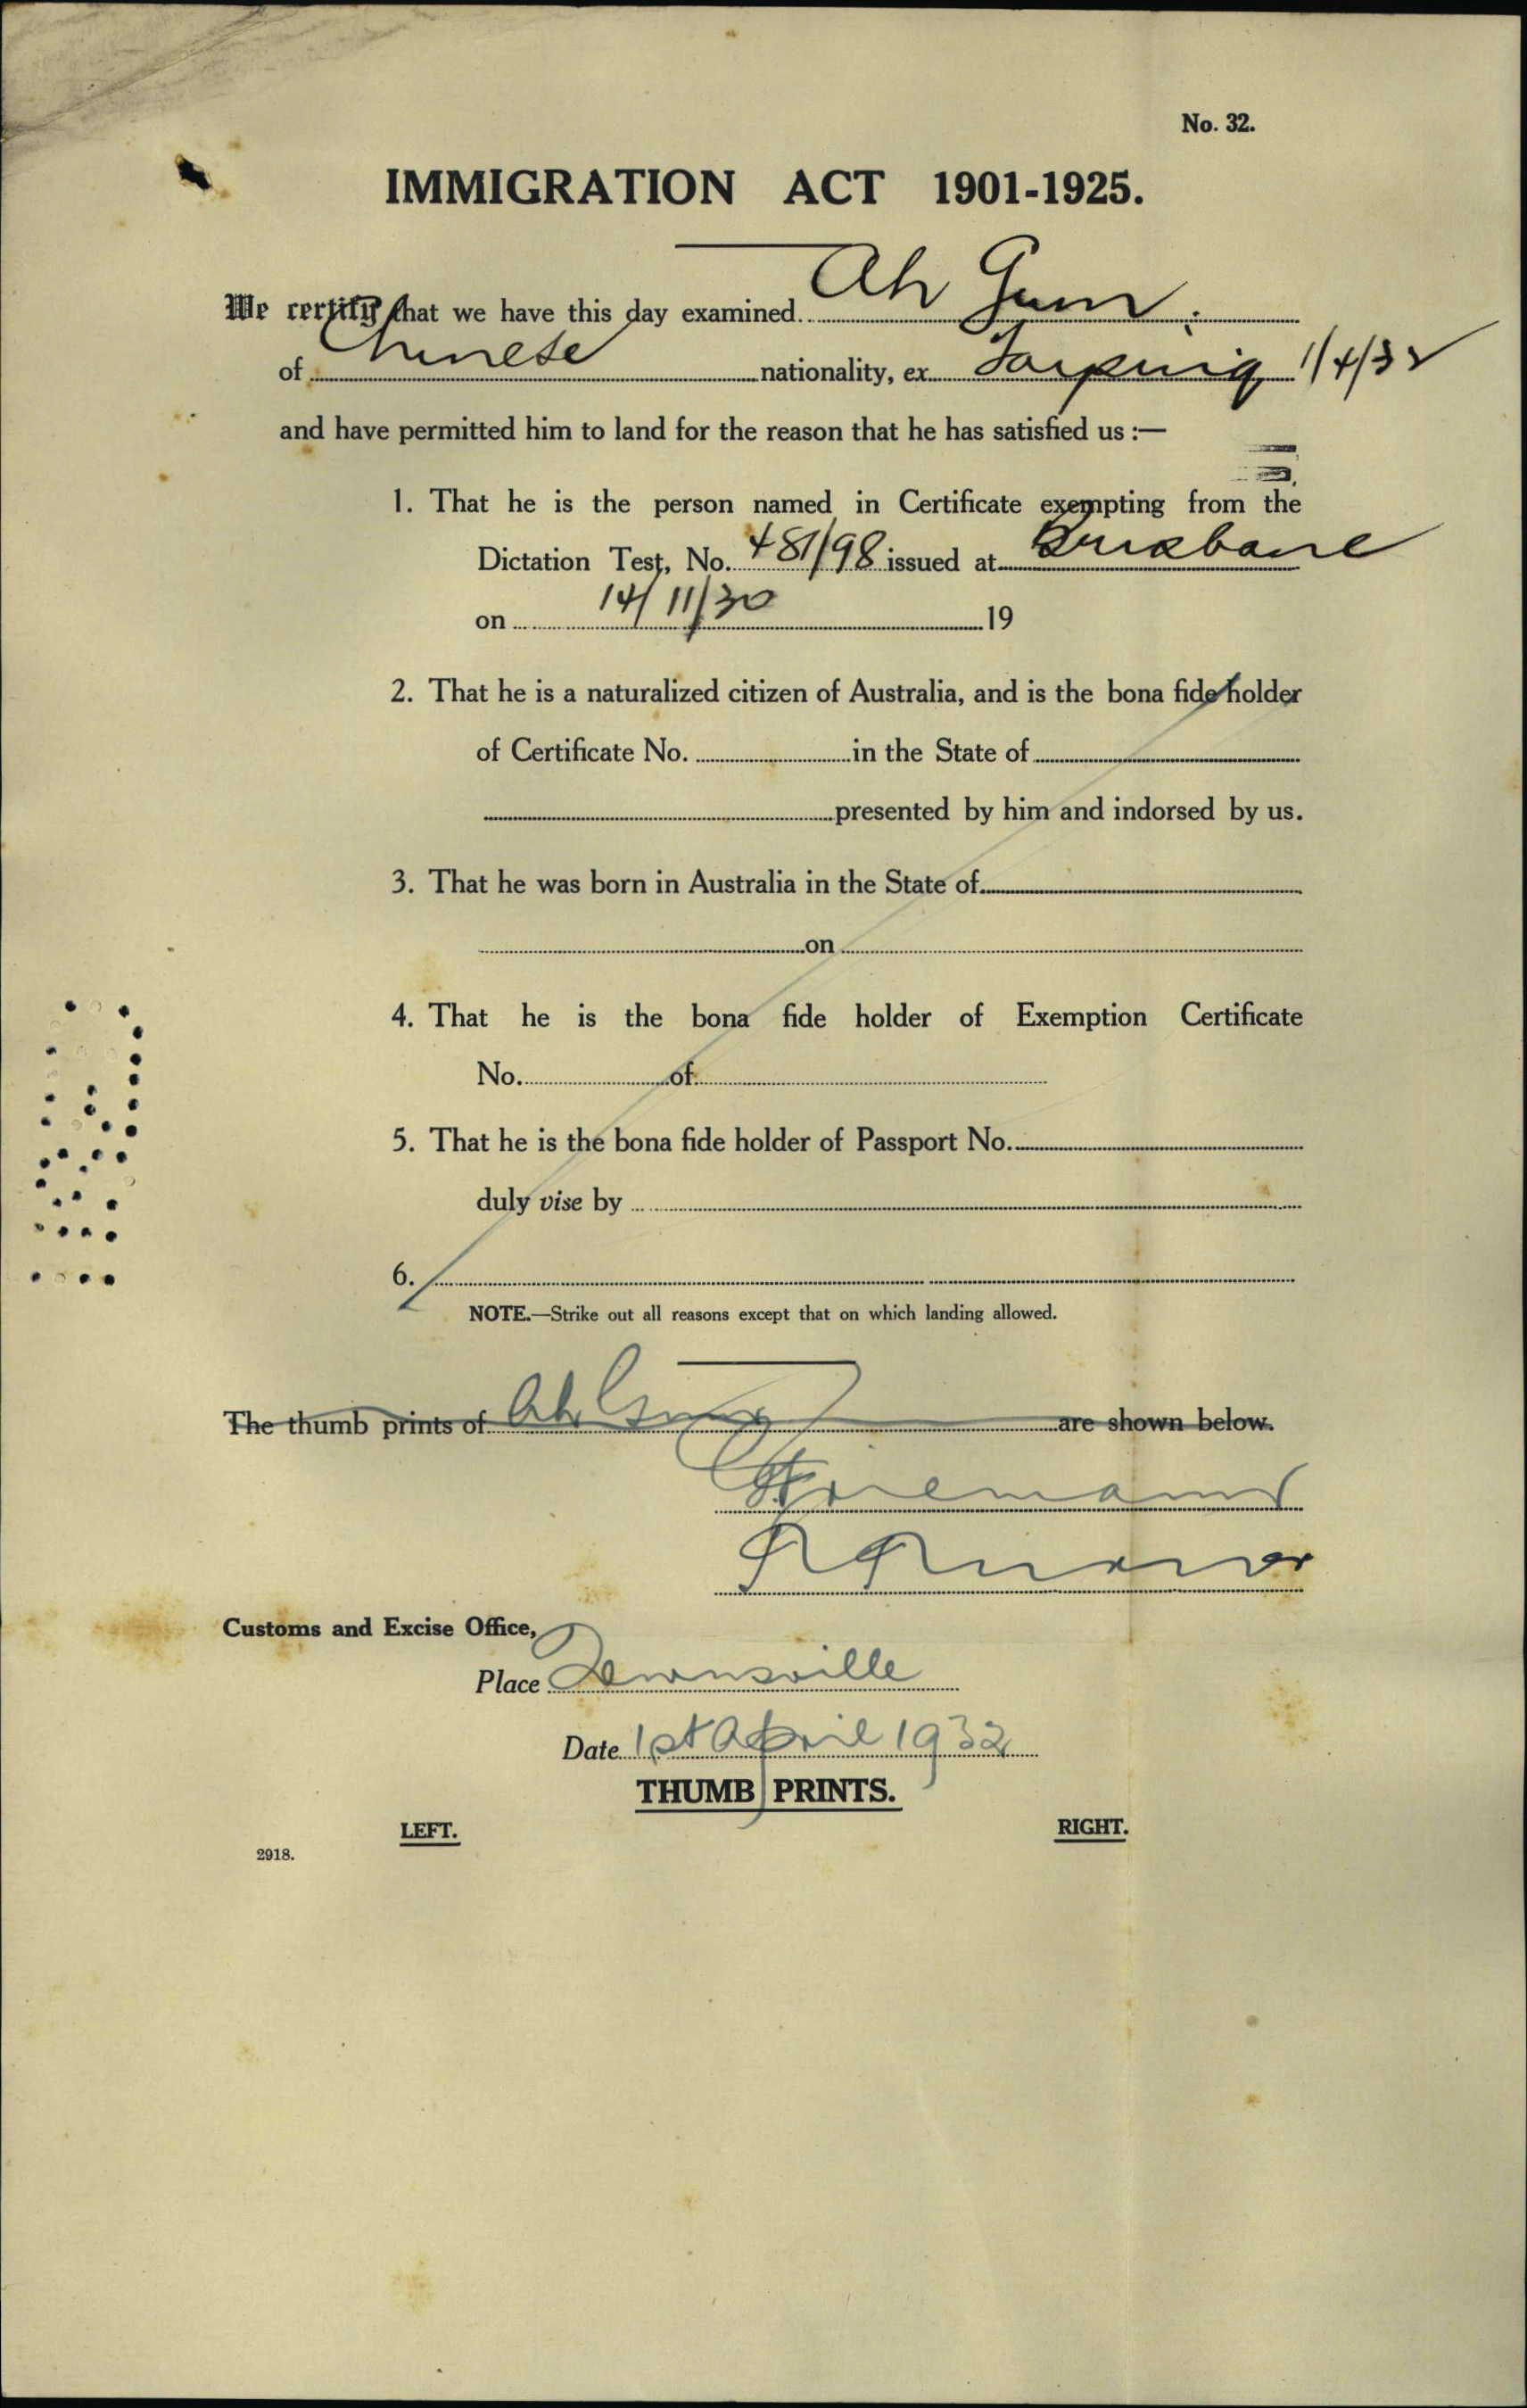 No. 32.
IMMIGRATION ACT 1901-1925.
We certify that we have this day examined Ah Gum
of Chinese nationality, ex Taiping 1/4/32
and have permitted him to land for the reason that he has satisfied us :—
1. That he is the person named in Certificate exempting from the
Dictation Test, No. 481/98 issued at Brisbane
on 14/11/30 19
2. That he is a naturalized citizen of Australia, and is the bona fide holder
of Certificate No. in the State of
presented by him and indorsed by us.
3. That he was born in Australia in the State of
on
4. That he is the bona fide holder of Exemption Certificate
No. of
5. That he is the bona fide holder of Passport No.
duly vise by
6.
NOTE.—Strike out all reasons except that on which landing allowed.
The thumb prints of Ah Gum are shown below.
Customs and Excise Office,
Place Townsville
Date 1st April 1932
THUMB PRINTS.
LEFT. RIGHT.
2918.